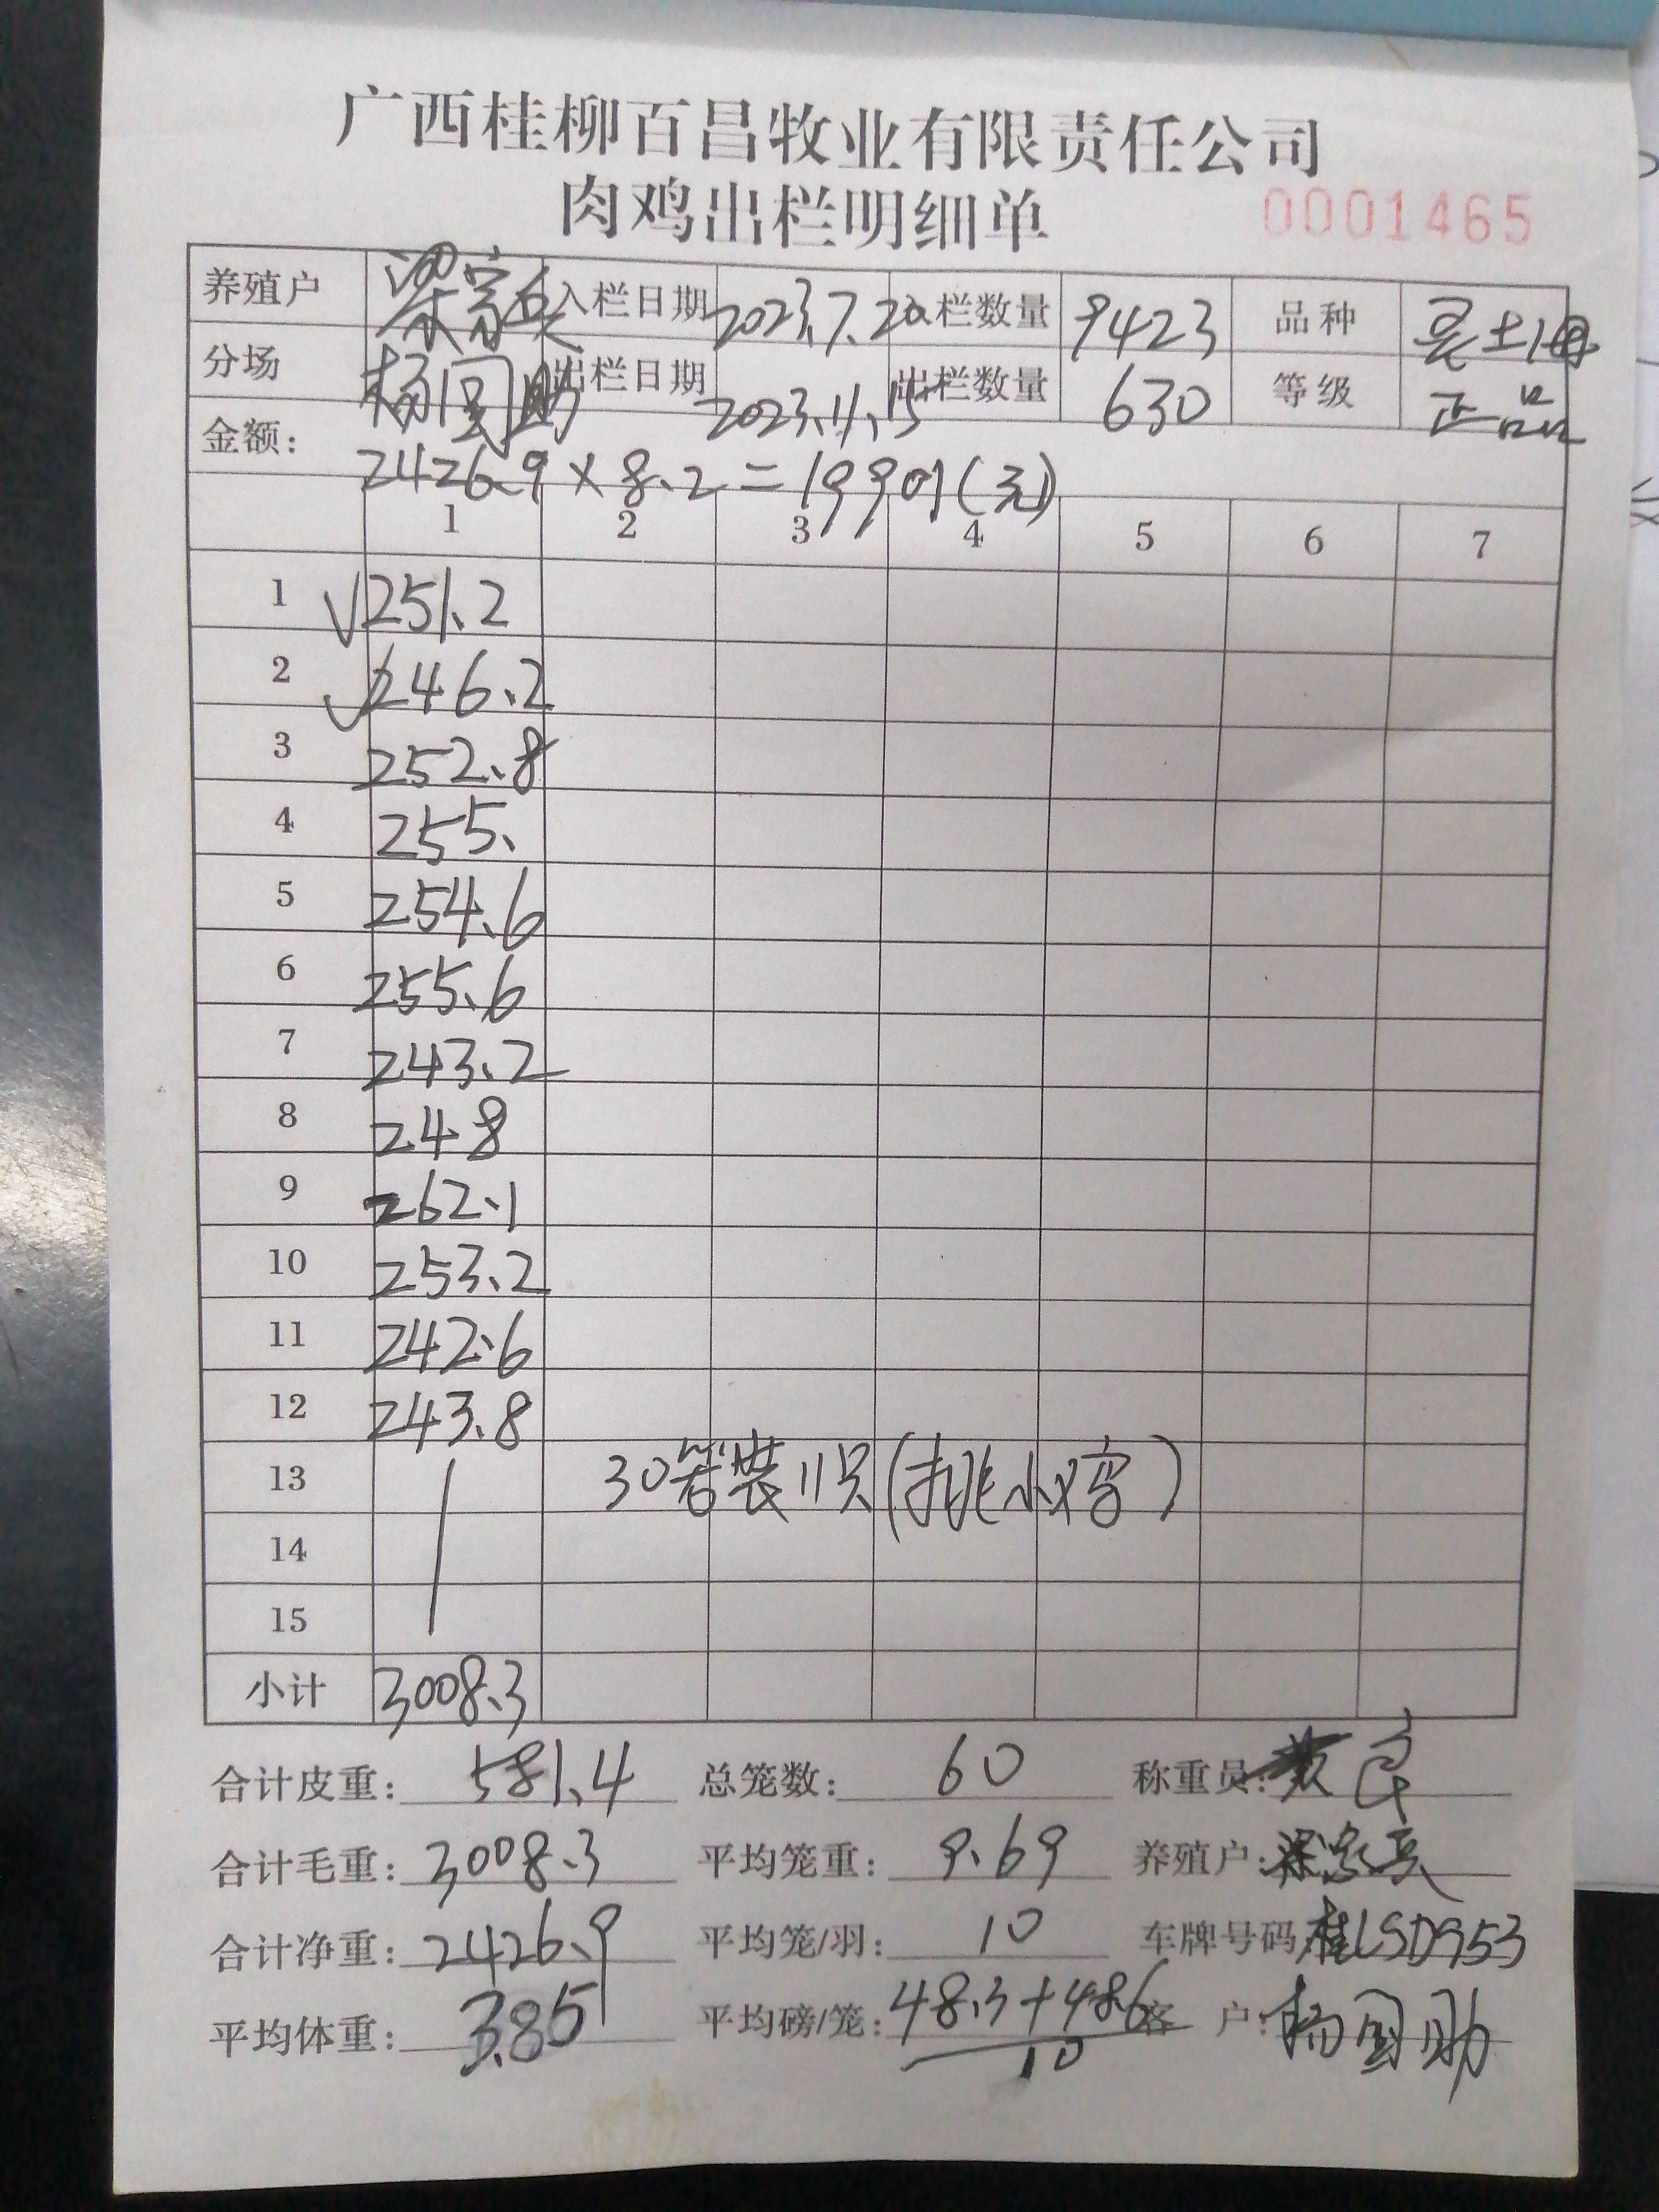 广西桂柳百昌牧业有限责任公司
肉鸡出栏明细单 0001465
养殖户 梁家兵 入栏日期 2023.7.20 入栏数量 9423 品种 土
分场 杨国助 出栏日期 2023.11.15 出栏数量 630 等级 正品
金额: 2426.9×8.2=19901(元)
1 2 3 4 5 6 7
1 √251.2
2 √246.2
3 252.8
4 255.
5 254.6
6 255.6
7 243.2
8 248
9 262.1
10 253.2
11 242.6
12 243.8
13 30笼装11只(挑小鸡)
14
15
小计 3008.3
合计皮重: 581.4 总笼数: 60 称重员:
合计毛重: 3008.3 平均笼重: 9.69 养殖户: 梁家兵
合计净重: 2426.9 平均笼/羽: 10 车牌号码 桂LSD953
平均体重: 3.85 平均磅/笼: 48.3+48.6 客户: 杨国助
10